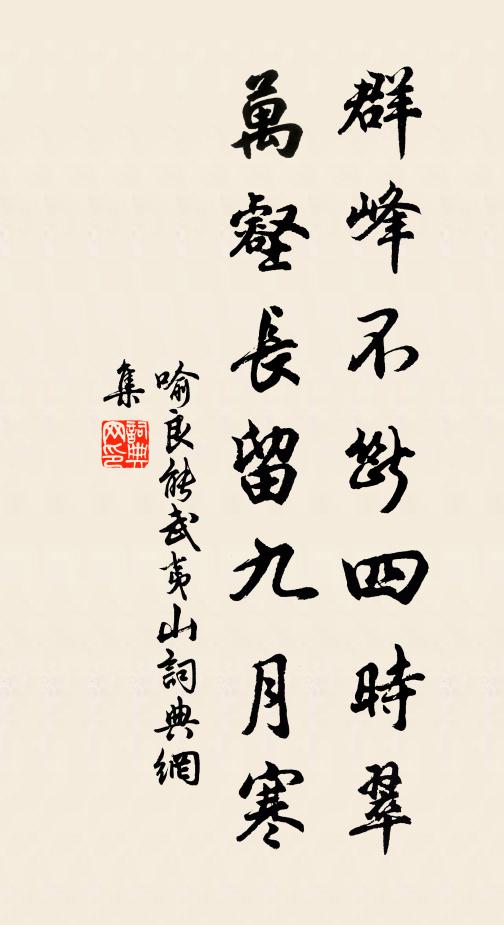 群峰不斷四時翠
萬壑長留九月寒
喻良能武夷山詞典網
集
詞典
网印